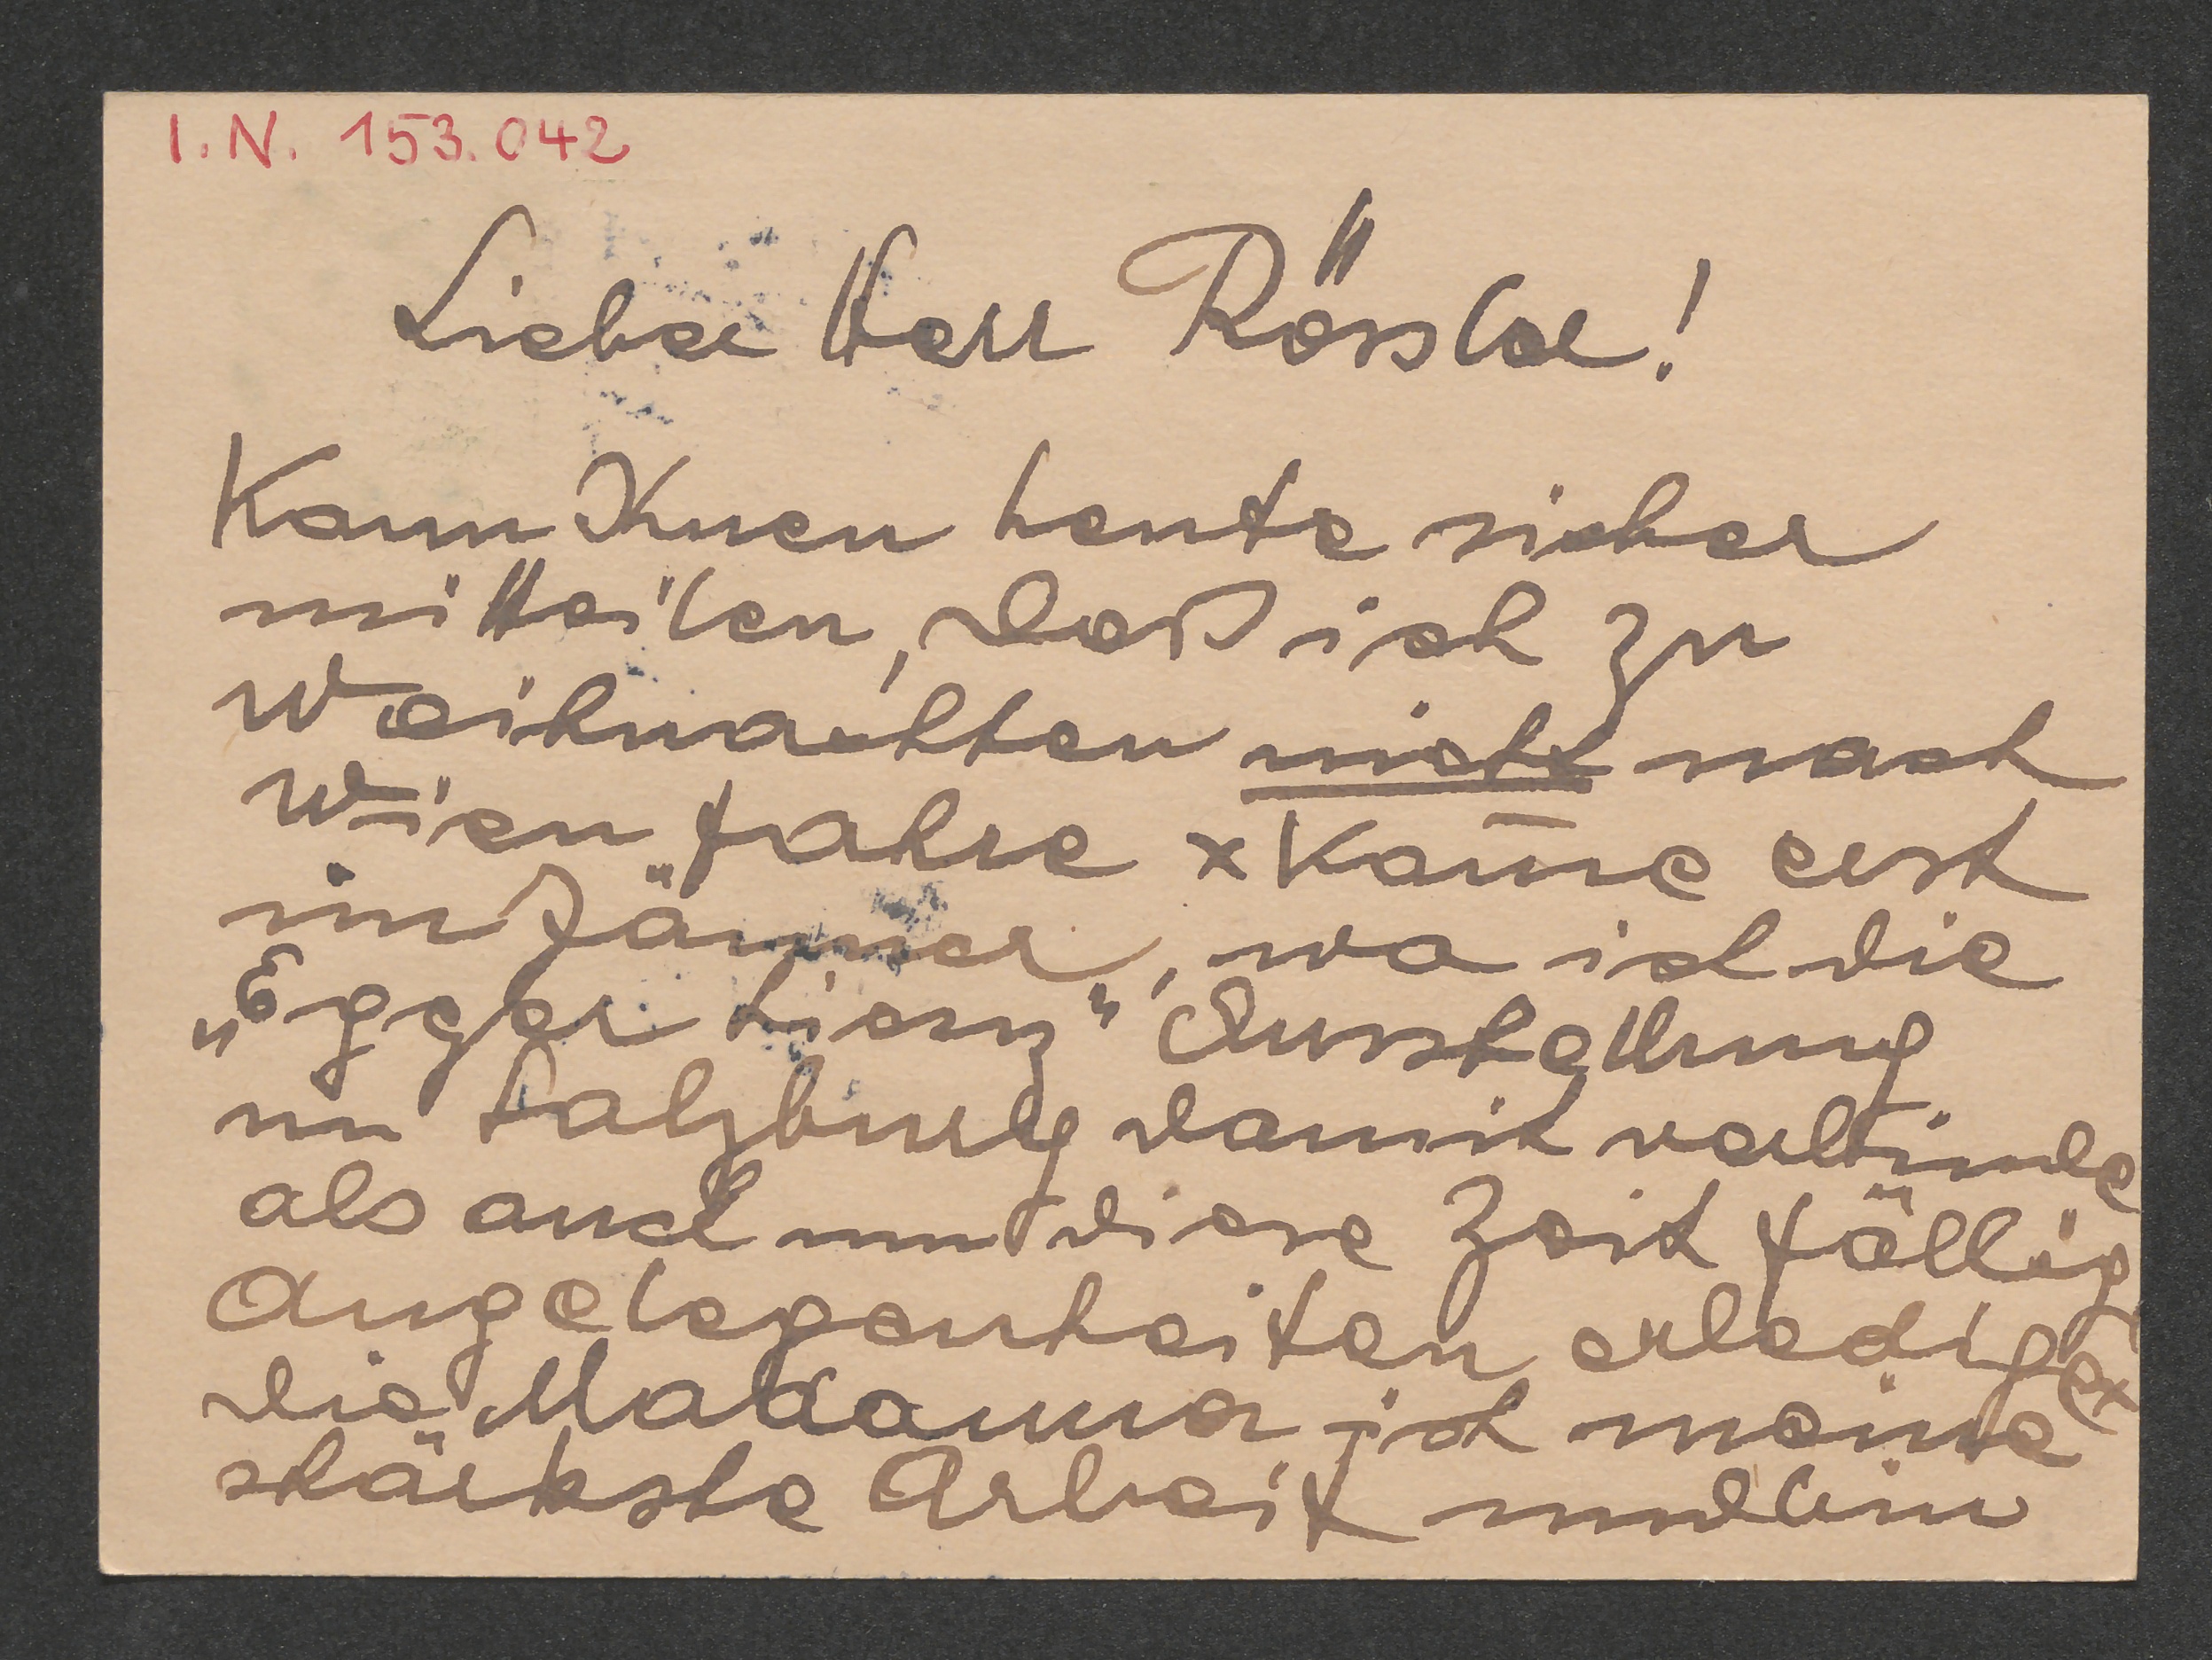 I. N. 153.042
Lieber Herr Rössler!
Kann Ihnen heute sicher
mitteilen, daß ich zu
Weihnachten nicht nach
Wien fahre x kom̅e erst
im Jänner, wo ich die
„Egger Lienz" Ausstellung
in Salzburg damit verbinde
als auch um diese Zeit fällig
Angelegenheiten erledige x
die Madonna ist meine
stärkste Arbeit und bin